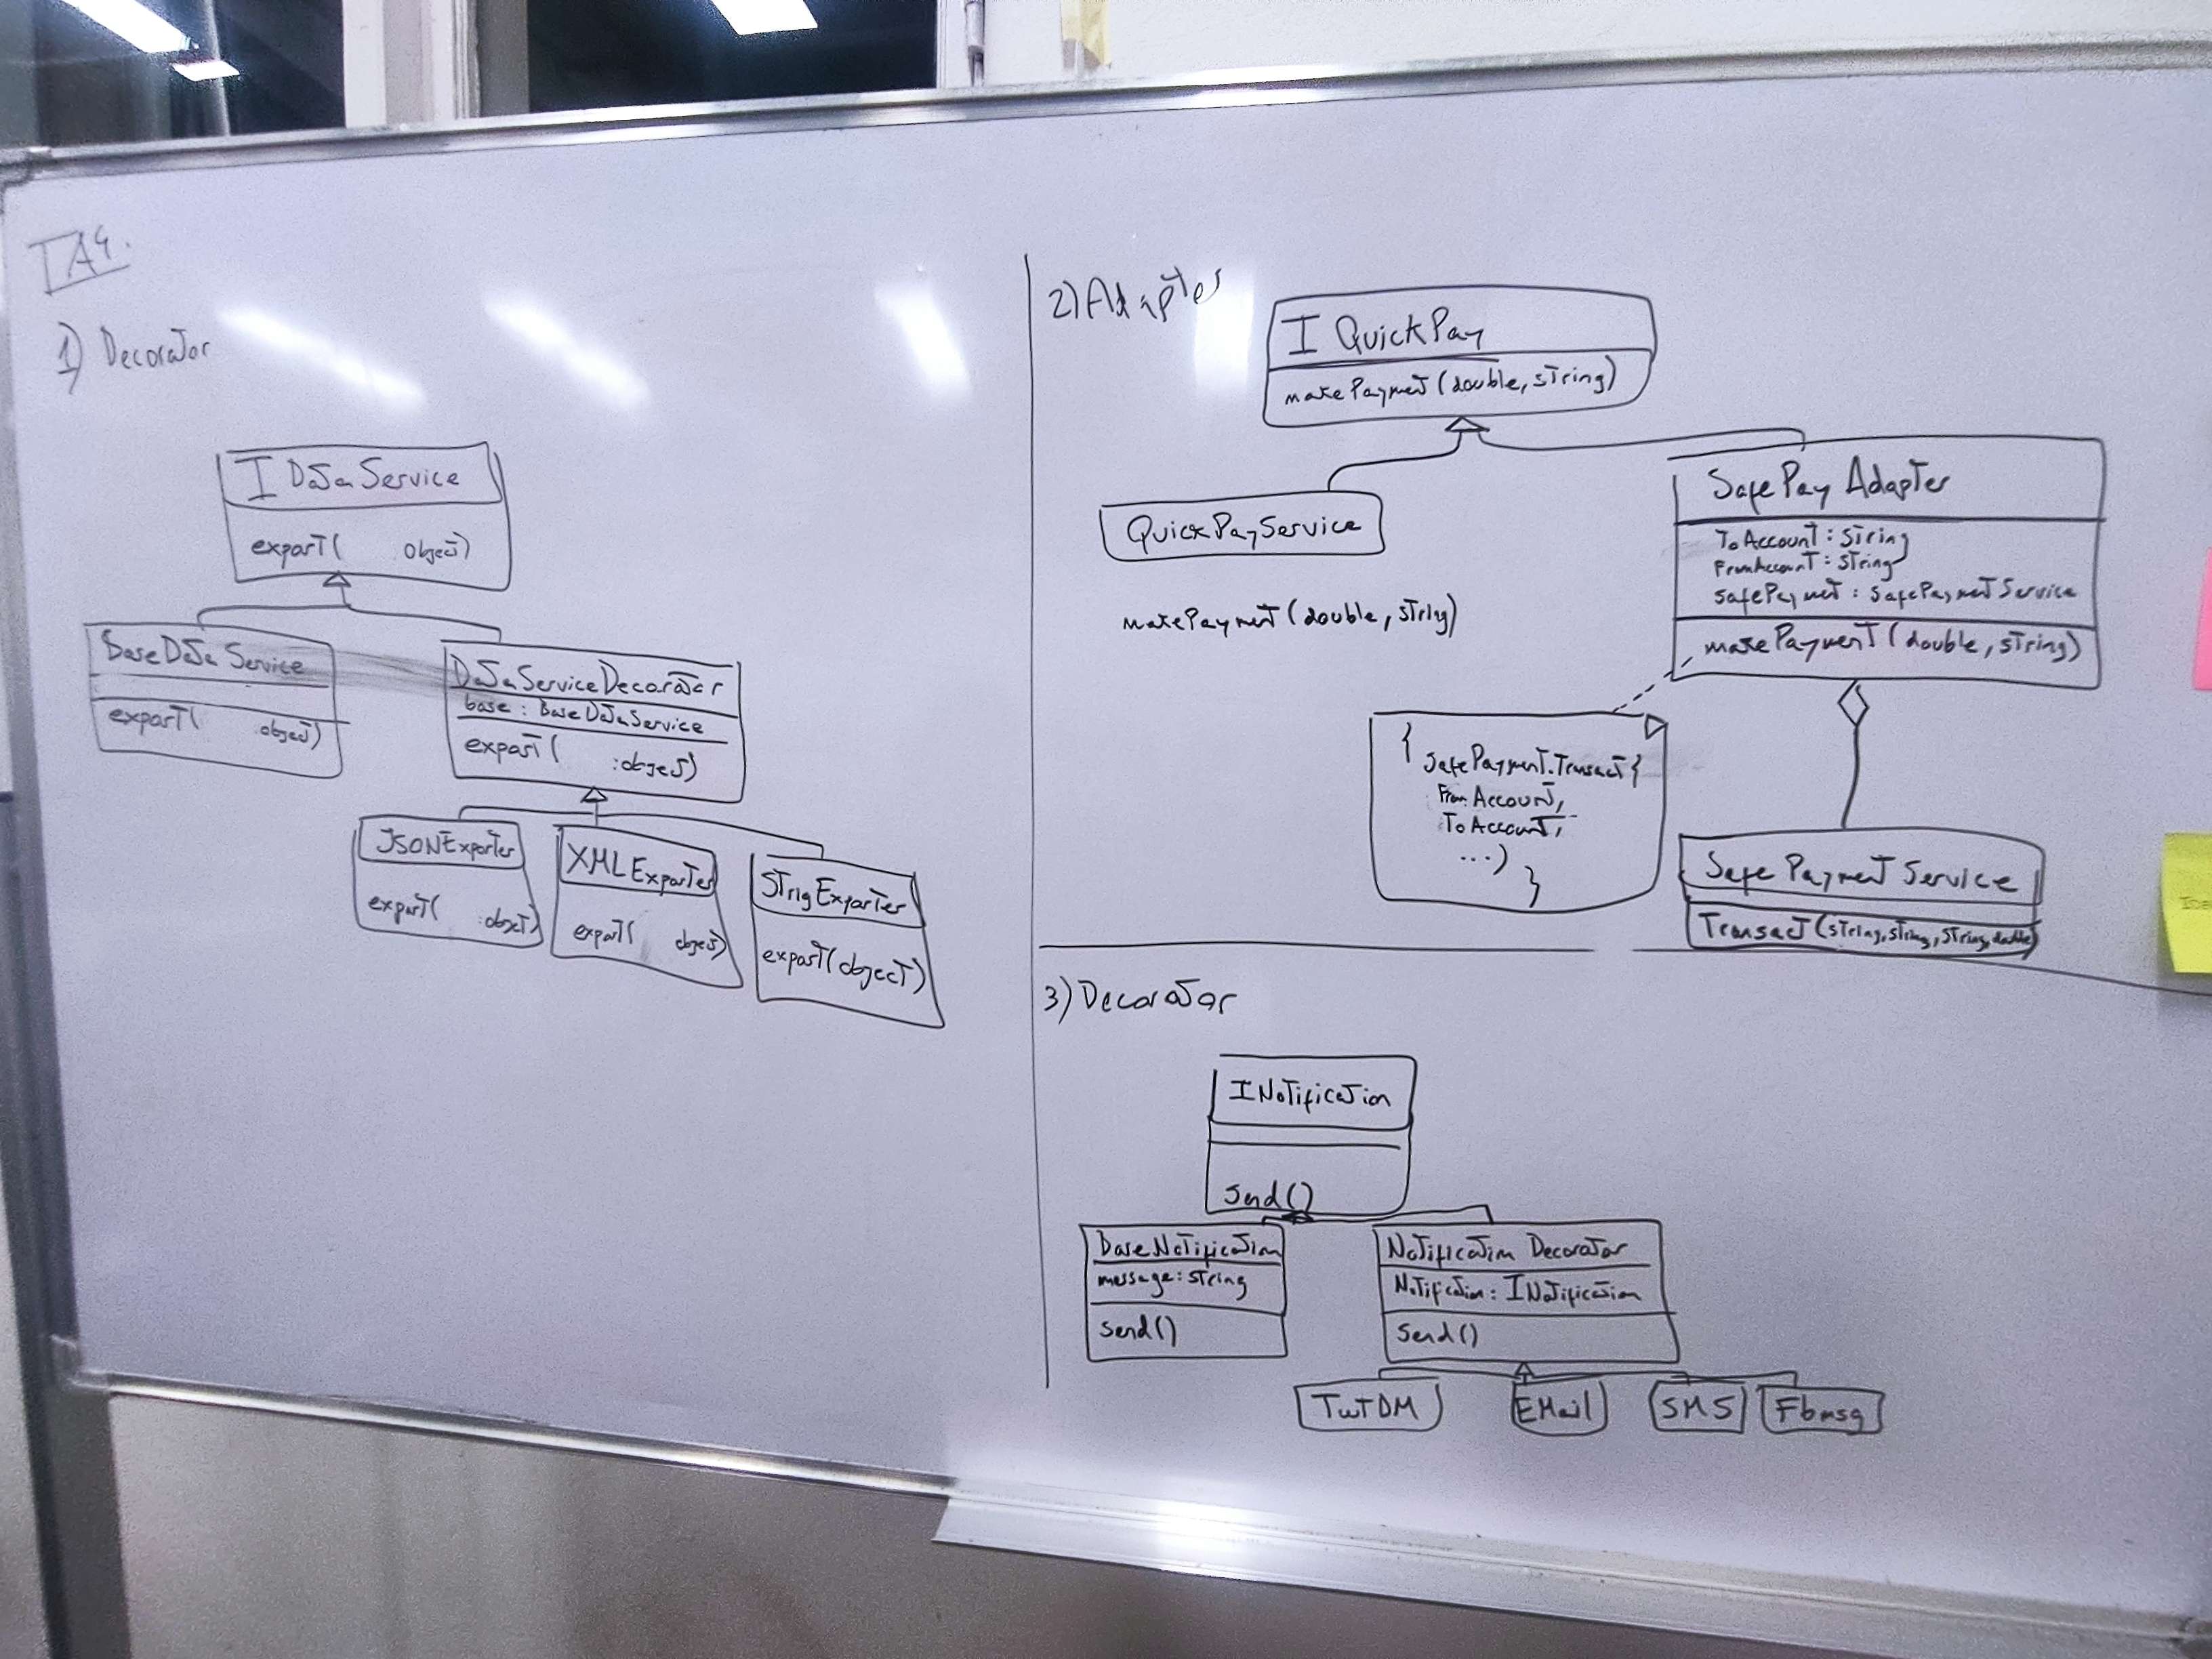 TA4.
1) Decorator
I DataService
export( object)
BaseDataService
export( object)
DataServiceDecorator
base : BaseDataService
export( :object)
JSONExporter
export( :object)
XMLExporter
export( object)
STrigExporter
export(object)
2) Adapter
I QuickPay
makePayment(double, string)
QuickPayService
makePayment(double, string)
SafePay Adapter
ToAccount : String
FromAccount : String
safePayment : SafePaymentService
makePayment(double, string)
{
safePayment.Transact{
From Account,
To Account,
...)
}
Safe Payment Service
Transact(string, string, string, double)
3) Decorator
INotification
send()
BaseNotification
message: string
send()
Notification Decorator
Notification: INotification
send()
TwTDM
EMail
SMS
Fbmsg